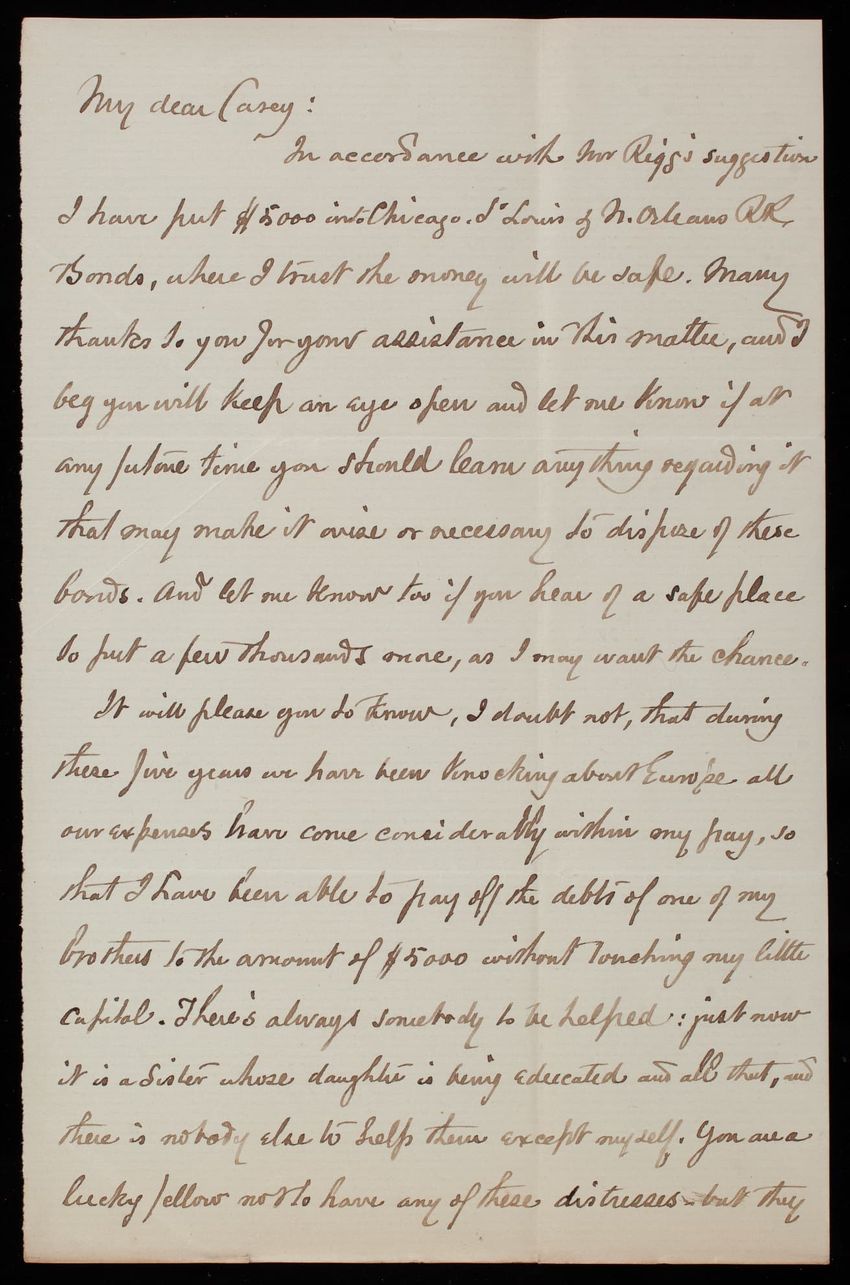 My dear Casey:
In accordance with Mr Riggs suggestion
I have put $5000 into Chicago. St Louis & N. Orleans RR
Bonds, where I trust the money will be safe. Many
thanks to you for your assistance in this matter, and I
beg you will keep an eye open and let me know if at
any future time you should learn anything regarding it
that may make it wise or necessary to dispose of these
bonds. And let me know too if you hear of a safe place
to put a few thousands more, as I may want the chance.
It will please you to know, I doubt not, that during
these five years we have been knocking about Europe all
our expenses have come considerably within my pay, so
that I have been able to pay off the debts of one of my
brothers to the amount of $5000 without touching my little
capital. There's always somebody to be helped: just now
it is a sister whose daughter is being educated and all that, and
there is nobody else to help them except myself. You are a
lucky fellow not to have any of these distresses - but they